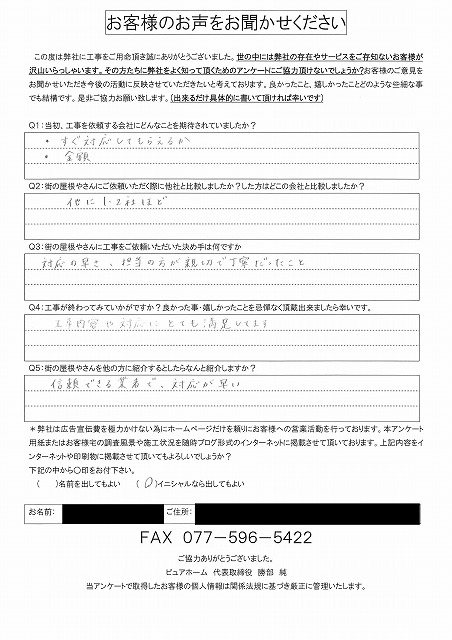 お客様のお声をお聞かせください
この度は弊社に工事をご用命頂き誠にありがとうございました。世の中には弊社の存在やサービスをご存知ないお客様が
沢山いらっしゃいます。その方たちに弊社をよく知って頂くためのアンケートにご協力頂けないでしょうか?お客様のご意見を
お聞かせいただき今後の活動に反映させていただきたいと考えております。良かったこと、嬉しかったことどのような些細な事
でも結構です。是非ご協力お願い致します。(出来るだけ具体的に書いて頂ければ幸いです)
Q1:当初、工事を依頼する会社にどんなことを期待されていましたか?
・すぐ対応してもらえるか
・金額
Q2:街の屋根やさんにご依頼いただく際に他社と比較しましたか?した方はどこの会社と比較しましたか?
他に1~2社ほど
Q3:街の屋根やさんに工事をご依頼いただいた決め手は何ですか
対応の早さ、担当の方が親切で丁寧だったこと
Q4:工事が終わってみていかがですか?良かった事・嬉しかったことを忌憚なく頂戴出来ましたら幸いです。
工事内容や対応にとても満足してます
Q5:街の屋根やさんを他の方に紹介するとしたらなんと紹介しますか?
信頼できる業者で、対応が早い
*弊社は広告宣伝費を極力かけない為にホームページだけを頼りにお客様への営業活動を行っております。本アンケート
用紙またはお客様宅の調査風景や施工状況を随時ブログ形式のインターネットに掲載させて頂いております。上記内容をイ
ンターネットや印刷物に掲載させて頂いてもよろしいでしょうか?
下記の中から〇印をお付下さい。
( )名前を出してもよい (〇)イニシャルなら出してもよい
お名前: ご住所:
FAX 077-596-5422
ご協力ありがとうございました。
ピュアホーム 代表取締役 勝部 純
当アンケートで取得したお客様の個人情報は関係法規に基づき厳正に管理いたします。